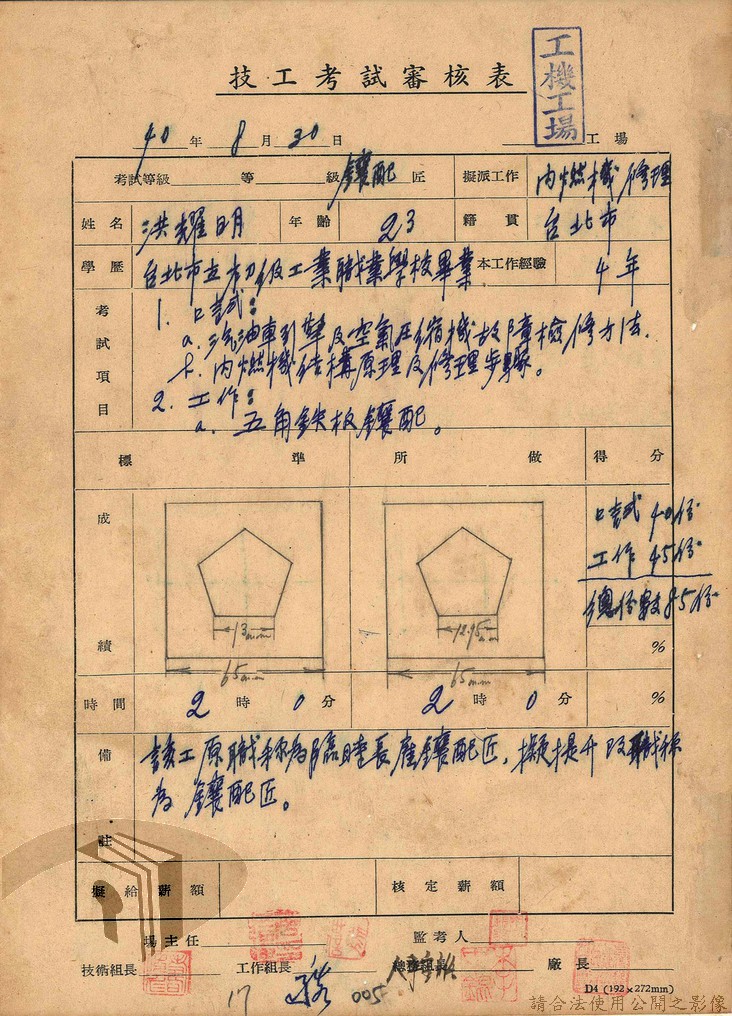 技工考試審核表
工機工場
40年8月30日 工場
考試等級 等 級 鑲配 匠 擬派工作 內燃機修理
姓名 洪耀明 年齡 23 籍貫 台北市
學歷 台北市立初級工業職業學校畢業 本工作經驗 4年
考試項目
1. 口試:
a. 汽油車引擎及空氣压縮機故障檢修方法.
b. 內燃機結構原理及修理步驟。
2. 工作:
a. 五角鉄板鑲配。
標準 所做 得分
成績
口試 40份
工作 45份
總份數85份
13mm 12.95mm
65mm 65mm
%
時間 2時0分 2時0分 %
備註
該工原職称為臨時長雇鑲配匠,擬提升改職称
為鑲配匠。
擬給薪額 核定薪額
場主任 監考人
技術組長 工作組長 總務組長 廠長
17 005
D4 (192×272mm)
請合法使用公開之影像